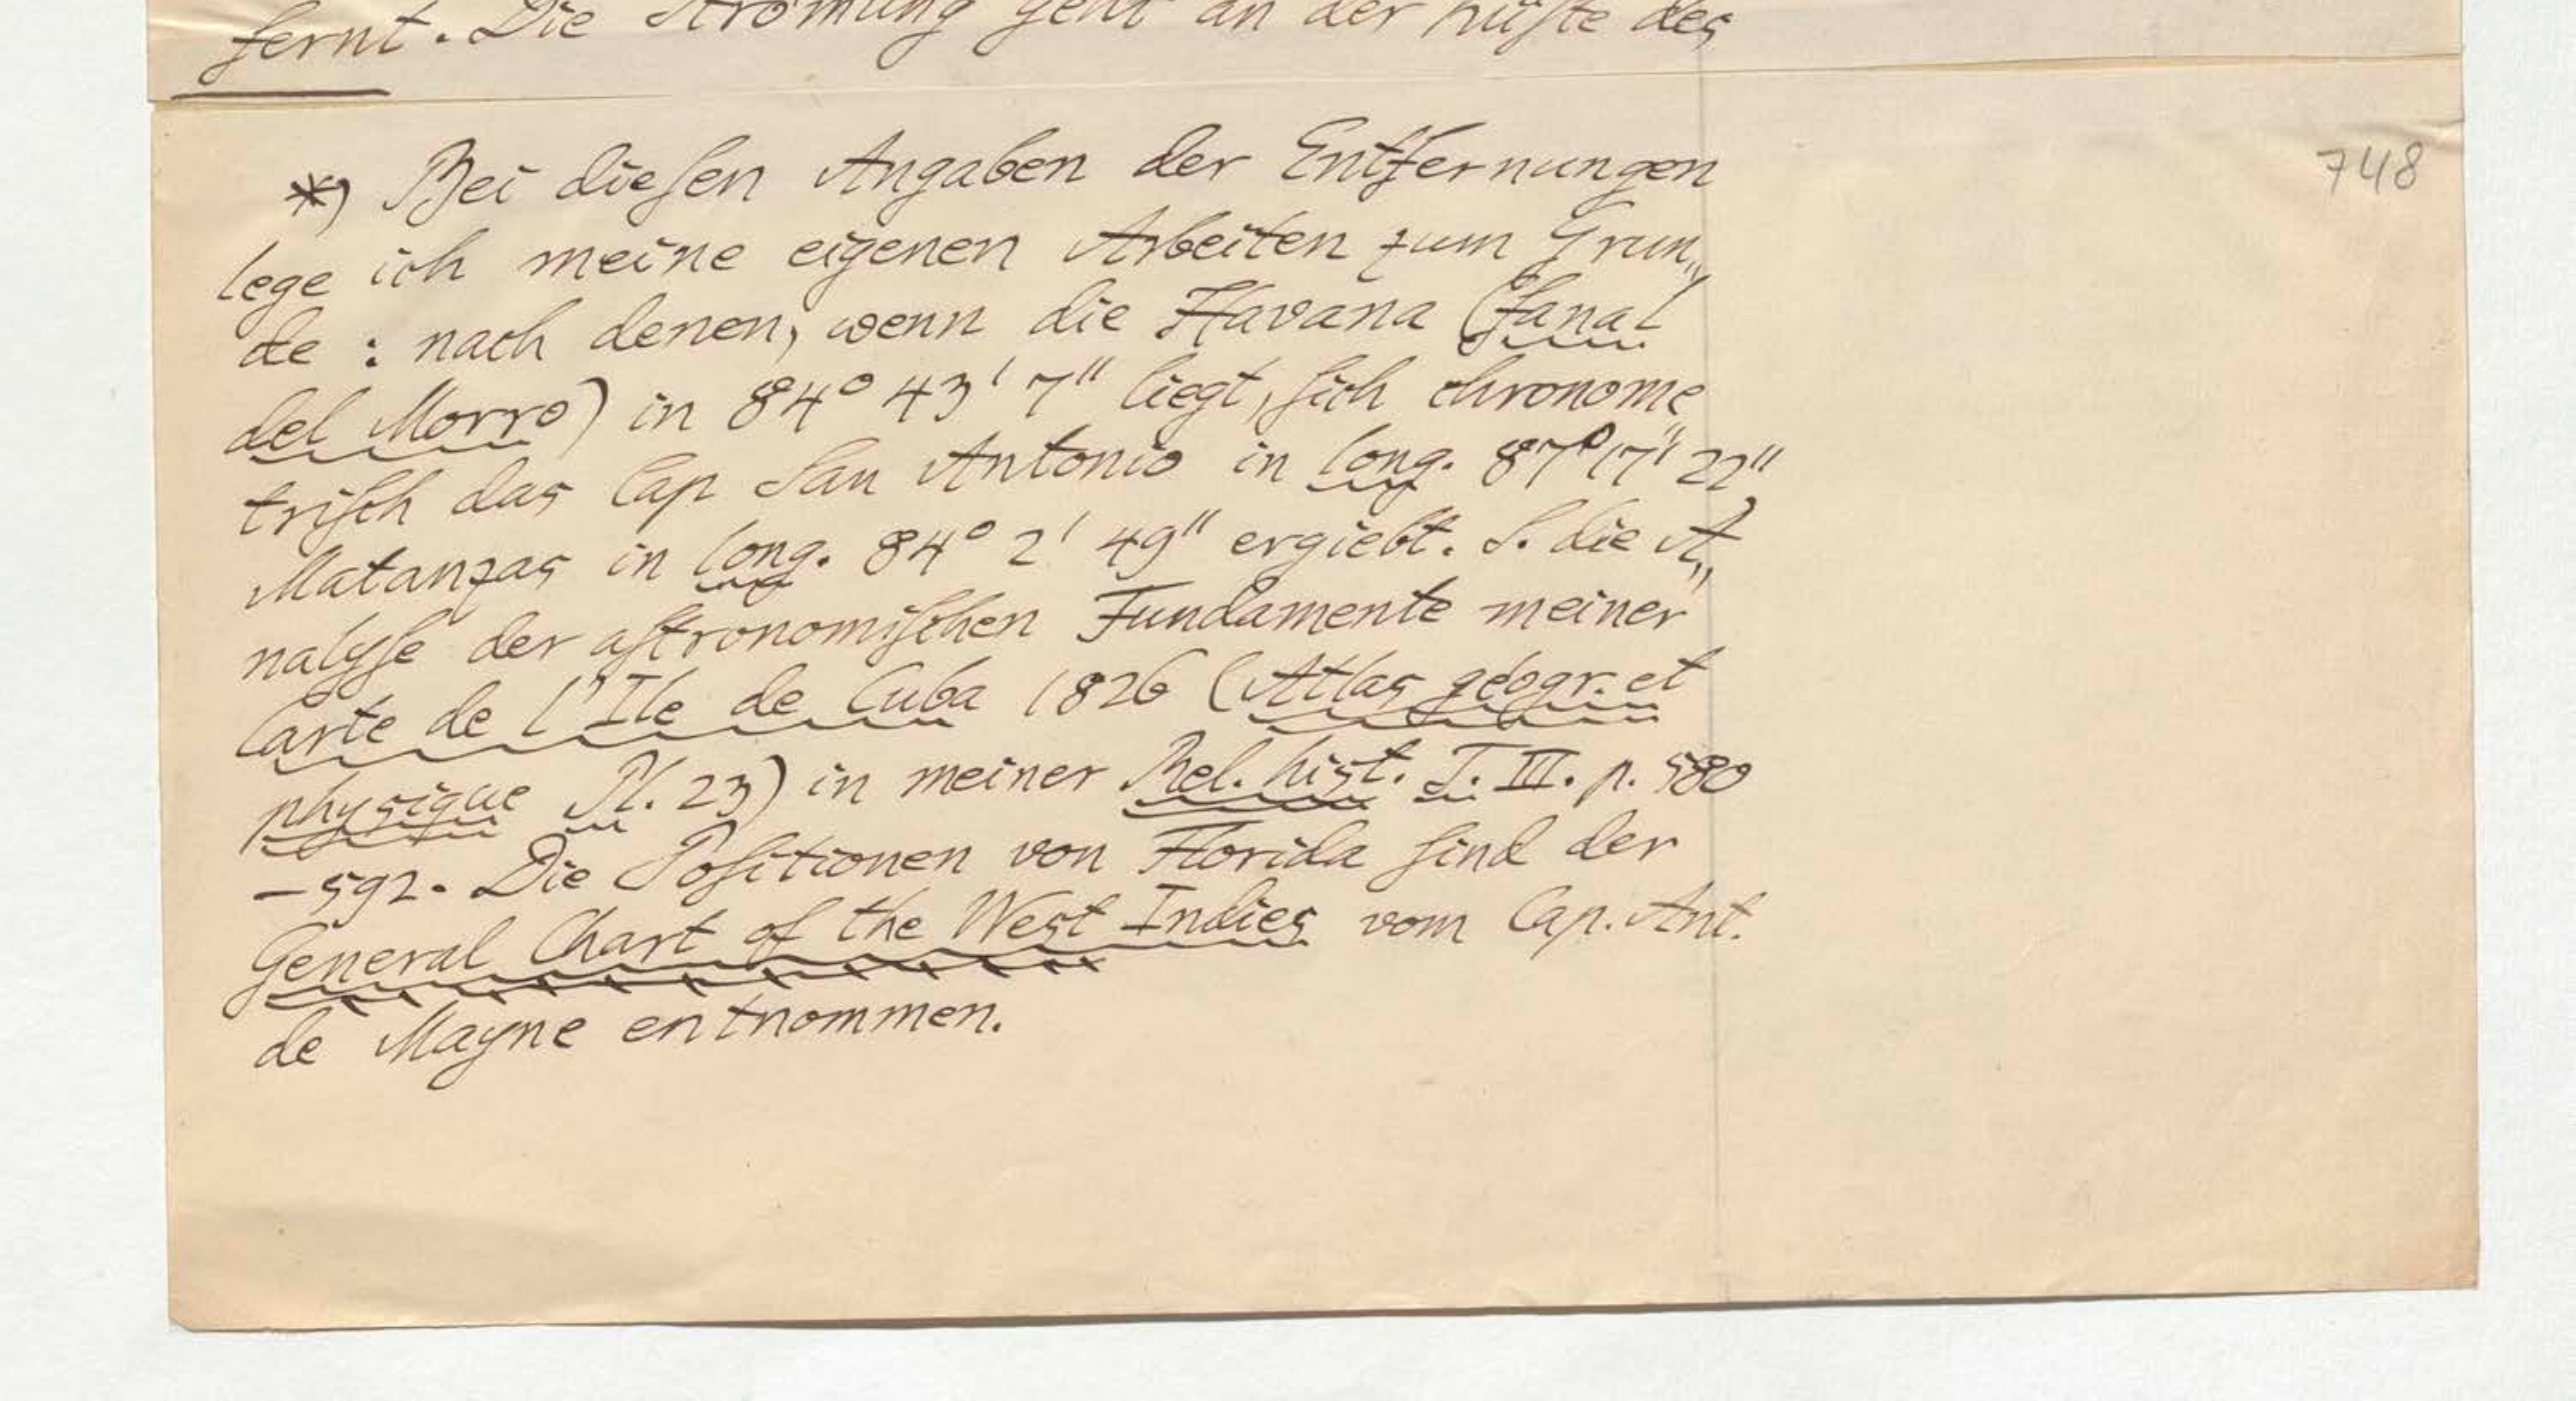 fernt. Die Strömung geht an der Küſte des
*) Bei dieſen Angaben der Entfernungen
748
lege ich meine eigenen Arbeiten zum Grun„
de : nach denen, wenn die Havana (fanal
del Morro) in 84° 43' 7" liegt, ſich chronome„
triſch das Cap San Antonio in long. 87° 17' 22",
Matanzas in long. 84° 2' 49" ergiebt. S. die A„
nalyſe der aſtronomiſchen Fundamente meiner
Carte de l'Ile de Cuba 1826 (Atlas géogr. et
physique Pl. 23) in meiner Rel. hist. T. III. p. 580
–592. Die Poſitionen von Florida ſind der
General Chart of the West Indies vom Cap. Ant.
de Mayne entnommen.